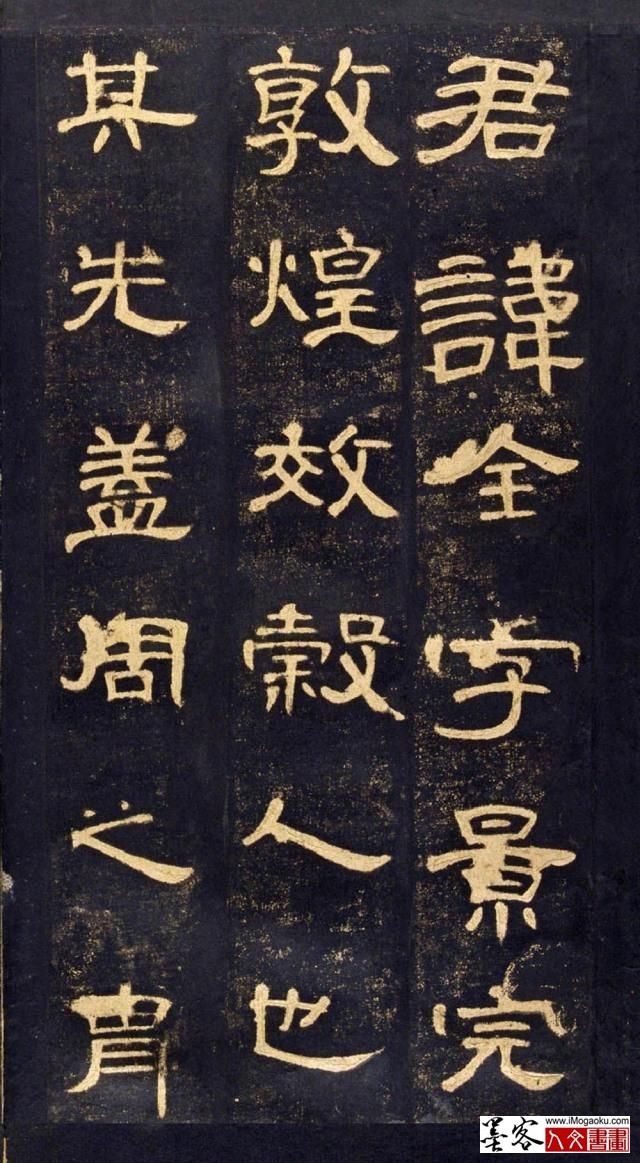 君諱全字景完
敦煌效穀人也
其先蓋周之胄
www.iMogaoku.com
墨客
人文書畫